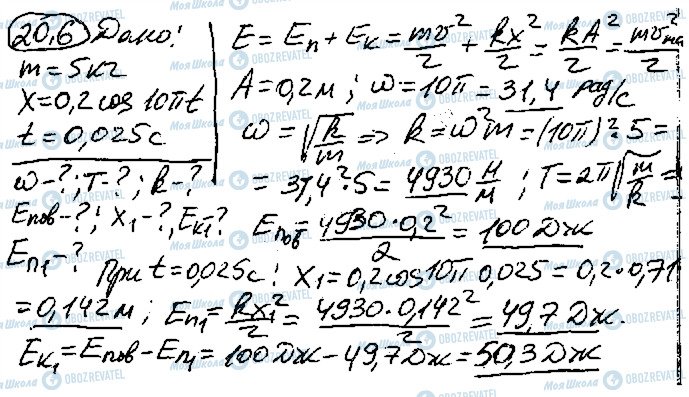 20.6 Дано:
m = 5 кг
x = 0,2 cos 10πt
t = 0,025 с
ω - ?; T - ?; k - ?
Eпов - ?; x₁ - ?; Eк₁ - ?
Eп₁ - ?
E = Eп + Eк = mv²/2 + kx²/2 = kA²/2 = mv²
A = 0,2 м; ω = 10π = 31,4 рад/с
ω = √(k/m) => k = ω²m = (10π)² · 5 =
= 31,4² · 5 = 4930 Н/м; T = 2π√(m/k) =
Eпов = 4930 · 0,2²/2 = 100 Дж
При t = 0,025 с: x₁ = 0,2 cos 10π 0,025 = 0,2 · 0,71
= 0,142 м; Eп₁ = kx₁²/2 = 4930 · 0,142²/2 = 49,7 Дж.
Eк₁ = Eпов - Eп₁ = 100 Дж - 49,7 Дж = 50,3 Дж
Моя Школа OBOZREVATEL